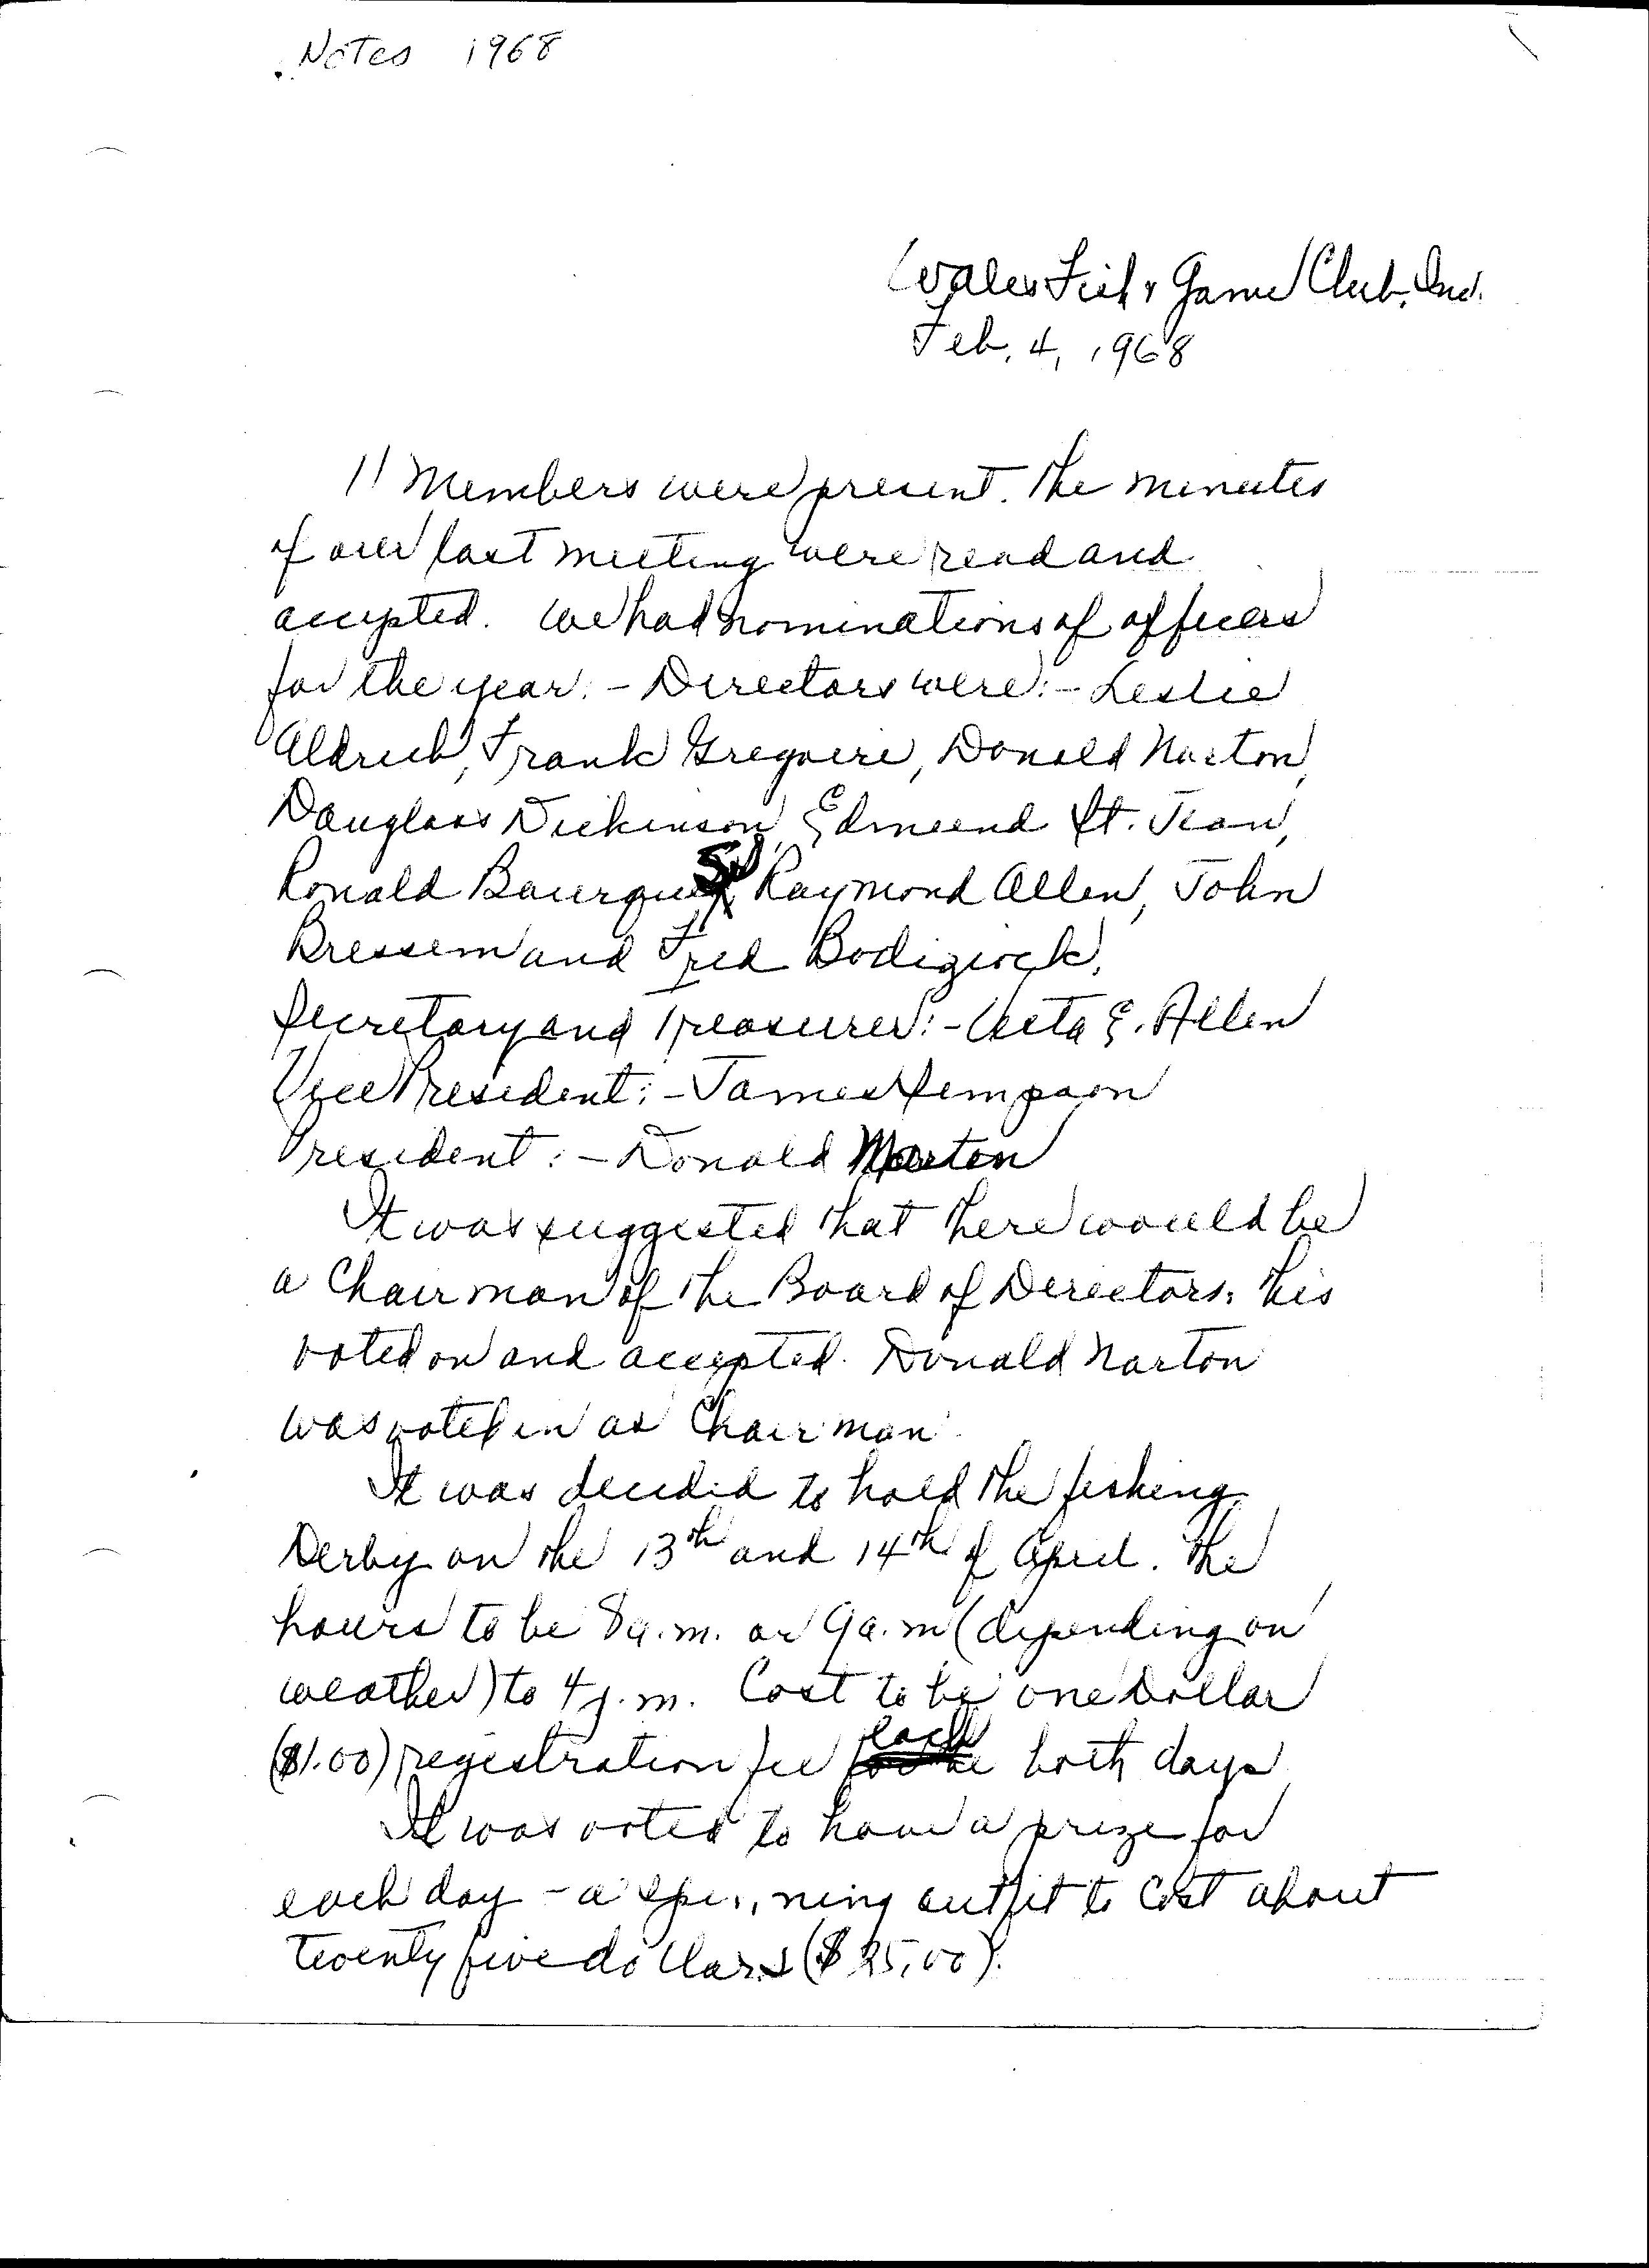 Notes 1968
Wales Fish & Game Club, Inc.
Feb. 4, 1968
11 Members were present. The minutes
of our last meeting were read and
accepted. We had nominations of officers
for the year: - Directors were: - Leslie
Aldrich, Frank Gregoire, Donald Norton,
Douglass Dickinson, Edmund St. Jean,
Ronald Bourque Raymond Allen, John
Bressem and Fred
Secretary and Treasurer: - E. Allen
Vice President: - James Sempson
President: - Donald
It was suggested that there would be
a Chairman of the Board of Directors. This
voted on and accepted. Donald Norton
was voted in as Chairman.
It was decided to hold the fishing
Derby on the 13th and 14th of April. The
hours to be 8 a.m. or 9 a.m (depending on
weather) to 4 p.m. Cost to be one Dollar
($1.00) registration fee each both days
It was voted to have a prize for
each day - a spinning outfit to cost about
twenty five dollars ($25.00).